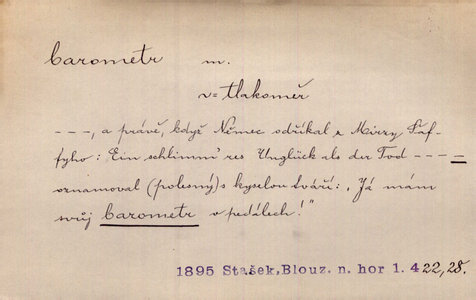 barometr m.
v= tlakoměr
– – –, a právě, když Němec odříkal z Mirzy Šaf-
fyho: „Ein schlimm'res Unglück als der Tod – – – –
oznamoval (polesný) s kyselou tváří: „Já mám
svůj barometr v pedálech!"
1895 Stašek, Blouz. n. hor 1. 422, 28.